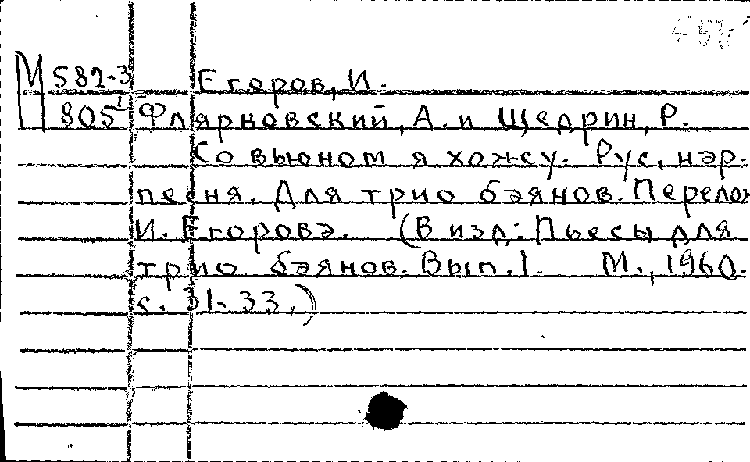 М 582-3 Егоров, И.
805 Флярковский, А. и Щедрин, Р.
Со вьюном я хожу. Рус. нар.
песня. Для трио баянов. Перелож.
И. Егорова. (В изд: Пьесы для
трио баянов. Вып. 1. М., 1960.
с. 31-33.)